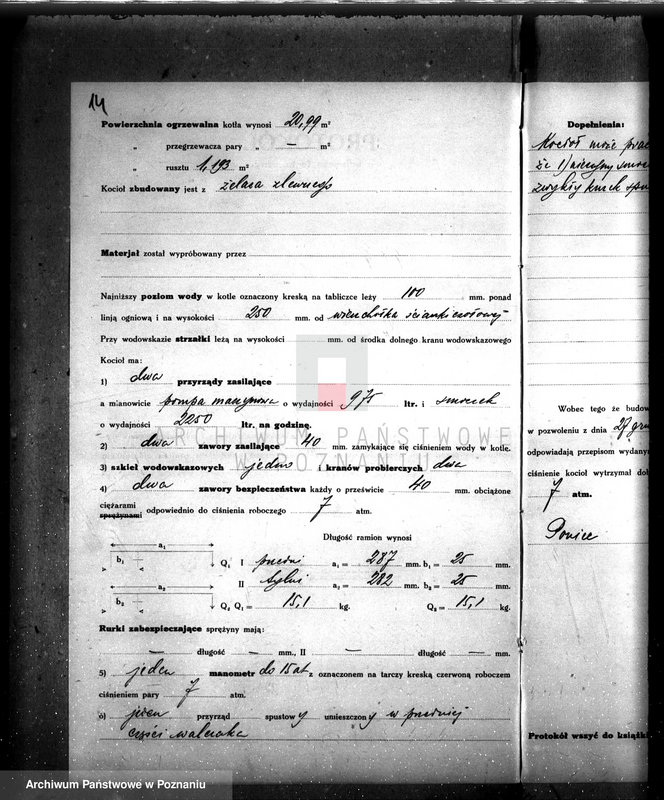 14
Powierzchnia ogrzewalna kotła wynosi 20,99 m²
„ przegrzewacza pary — m²
„ rusztu 1,193 m²
Kocioł zbudowany jest z żelaza zlewnego
Materjał został wypróbowany przez
Najniższy poziom wody w kotle oznaczony kreską na tabliczce leży 100 mm. ponad
linją ogniową i na wysokości 250 mm. od wierzchołka ścianki czołowej
Przy wodowskazie strzałki leżą na wysokości mm. od środka dolnego kranu wodowskazowego
Kocioł ma:
1) dwa przyrządy zasilające
a mianowicie pompa maszynowa o wydajności 975 ltr. i smoczek
o wydajności 2250 ltr. na godzinę.
2) dwa zawory zasilające 40 mm. zamykające się ciśnieniem wody w kotle.
3) szkieł wodowskazowych jedno i kranów probierczych dwa
4) dwa zawory bezpieczeństwa każdy o prześwicie 40 mm. obciążone
ciężarami
sprężynami odpowiednio do ciśnienia roboczego 7 atm.
Długość ramion wynosi
a₁ b₁ Q₁ I przedni a₁ = 287 mm. b₁ = 25 mm.
a₂ b₂ II tylni a₂ = 282 mm. b₂ = 25 mm.
Q₂ Q₁ = 15,1 kg. Q₂ = 15,1 kg.
Rurki zabezpieczające sprężyny mają:
— długość — mm., II — długość — mm.
5) jeden manometr do 15 at z oznaczonem na tarczy kreską czerwoną roboczem
ciśnieniem pary 7 atm.
6) jeden przyrząd spustowy umieszczony w przedniej
części walczaka
Dopełnienia:
Kocioł może
że 1)
zwykły kurek
Wobec tego że budow
w pozwoleniu z dnia 27
odpowiadają przepisom wydany
ciśnienie kocioł wytrzymał do
7 atm.
Poniec
Protokół wszyć do książki
ARCHIWUM PAŃSTWOWE
W POZNANIU
Archiwum Państwowe w Poznaniu